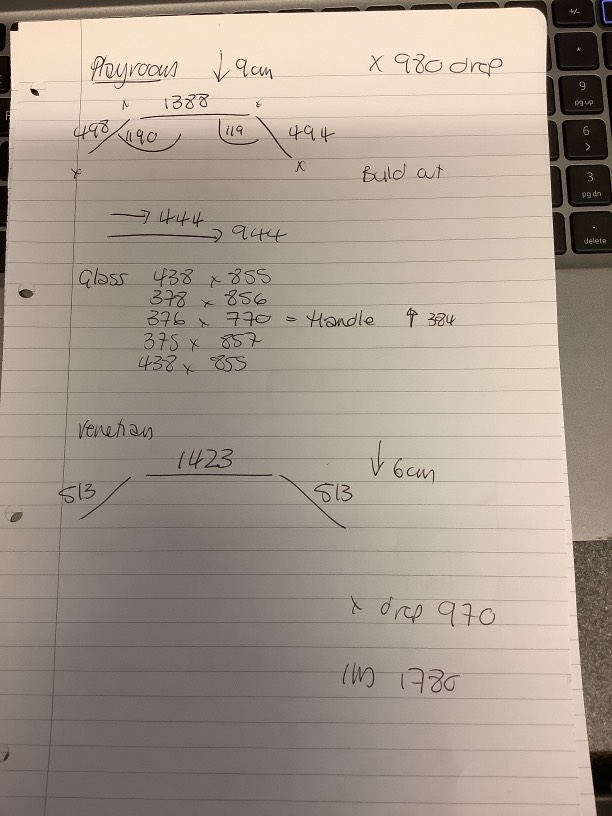 Playroom ↓ 9cm x 980 drop
x 1388 x
498 1190 119 494
x x
Build out
→ 444
→ 944
Glass 438 x 855
378 x 856
376 x 770 = Handle ↑ 384
375 x 857
438 x 855
Venetian
1423
513 513 ↓ 6cm
x drop 970
1780
+/-
*
9
pg up
6
>
3
pg dn
.
delete